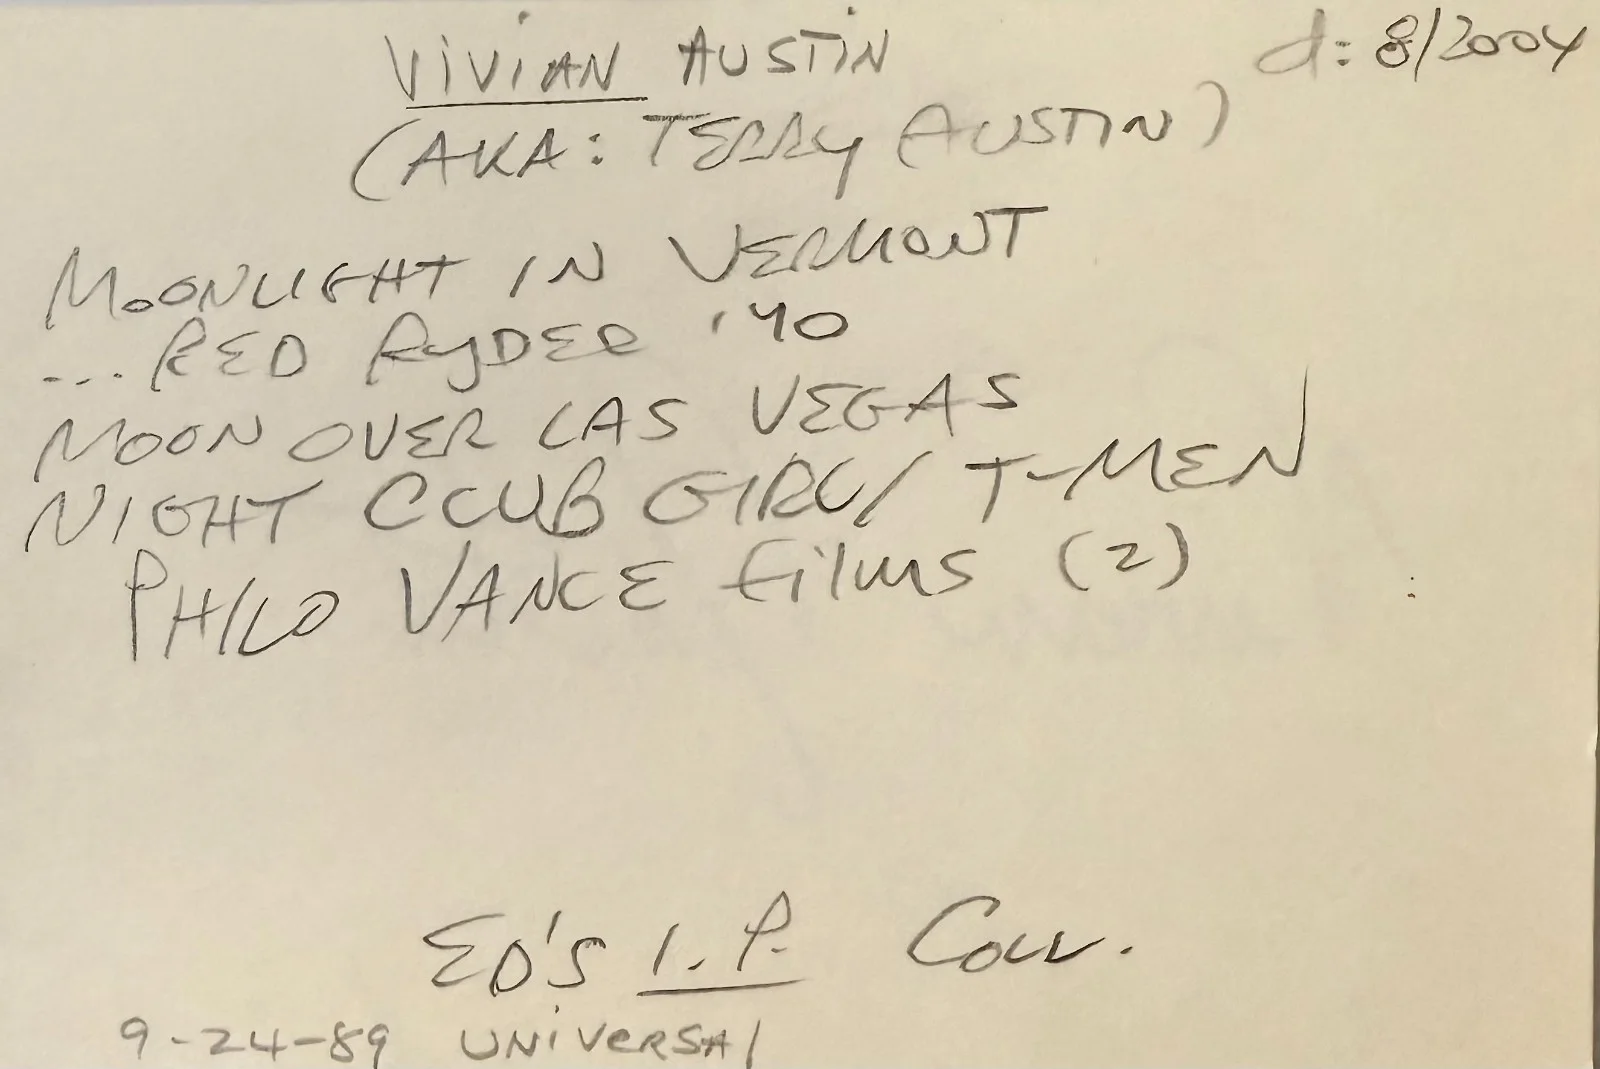 VIVIAN AUSTIN d: 8/2004
(AKA: TERRY AUSTIN)
MOONLIGHT IN VERMONT
... RED RYDER '40
MOON OVER LAS VEGAS
NIGHT CLUB GIRL/ T-MEN
PHILO VANCE films (2)
ED'S I.P. Coll.
9-24-89 UNIVERSAL